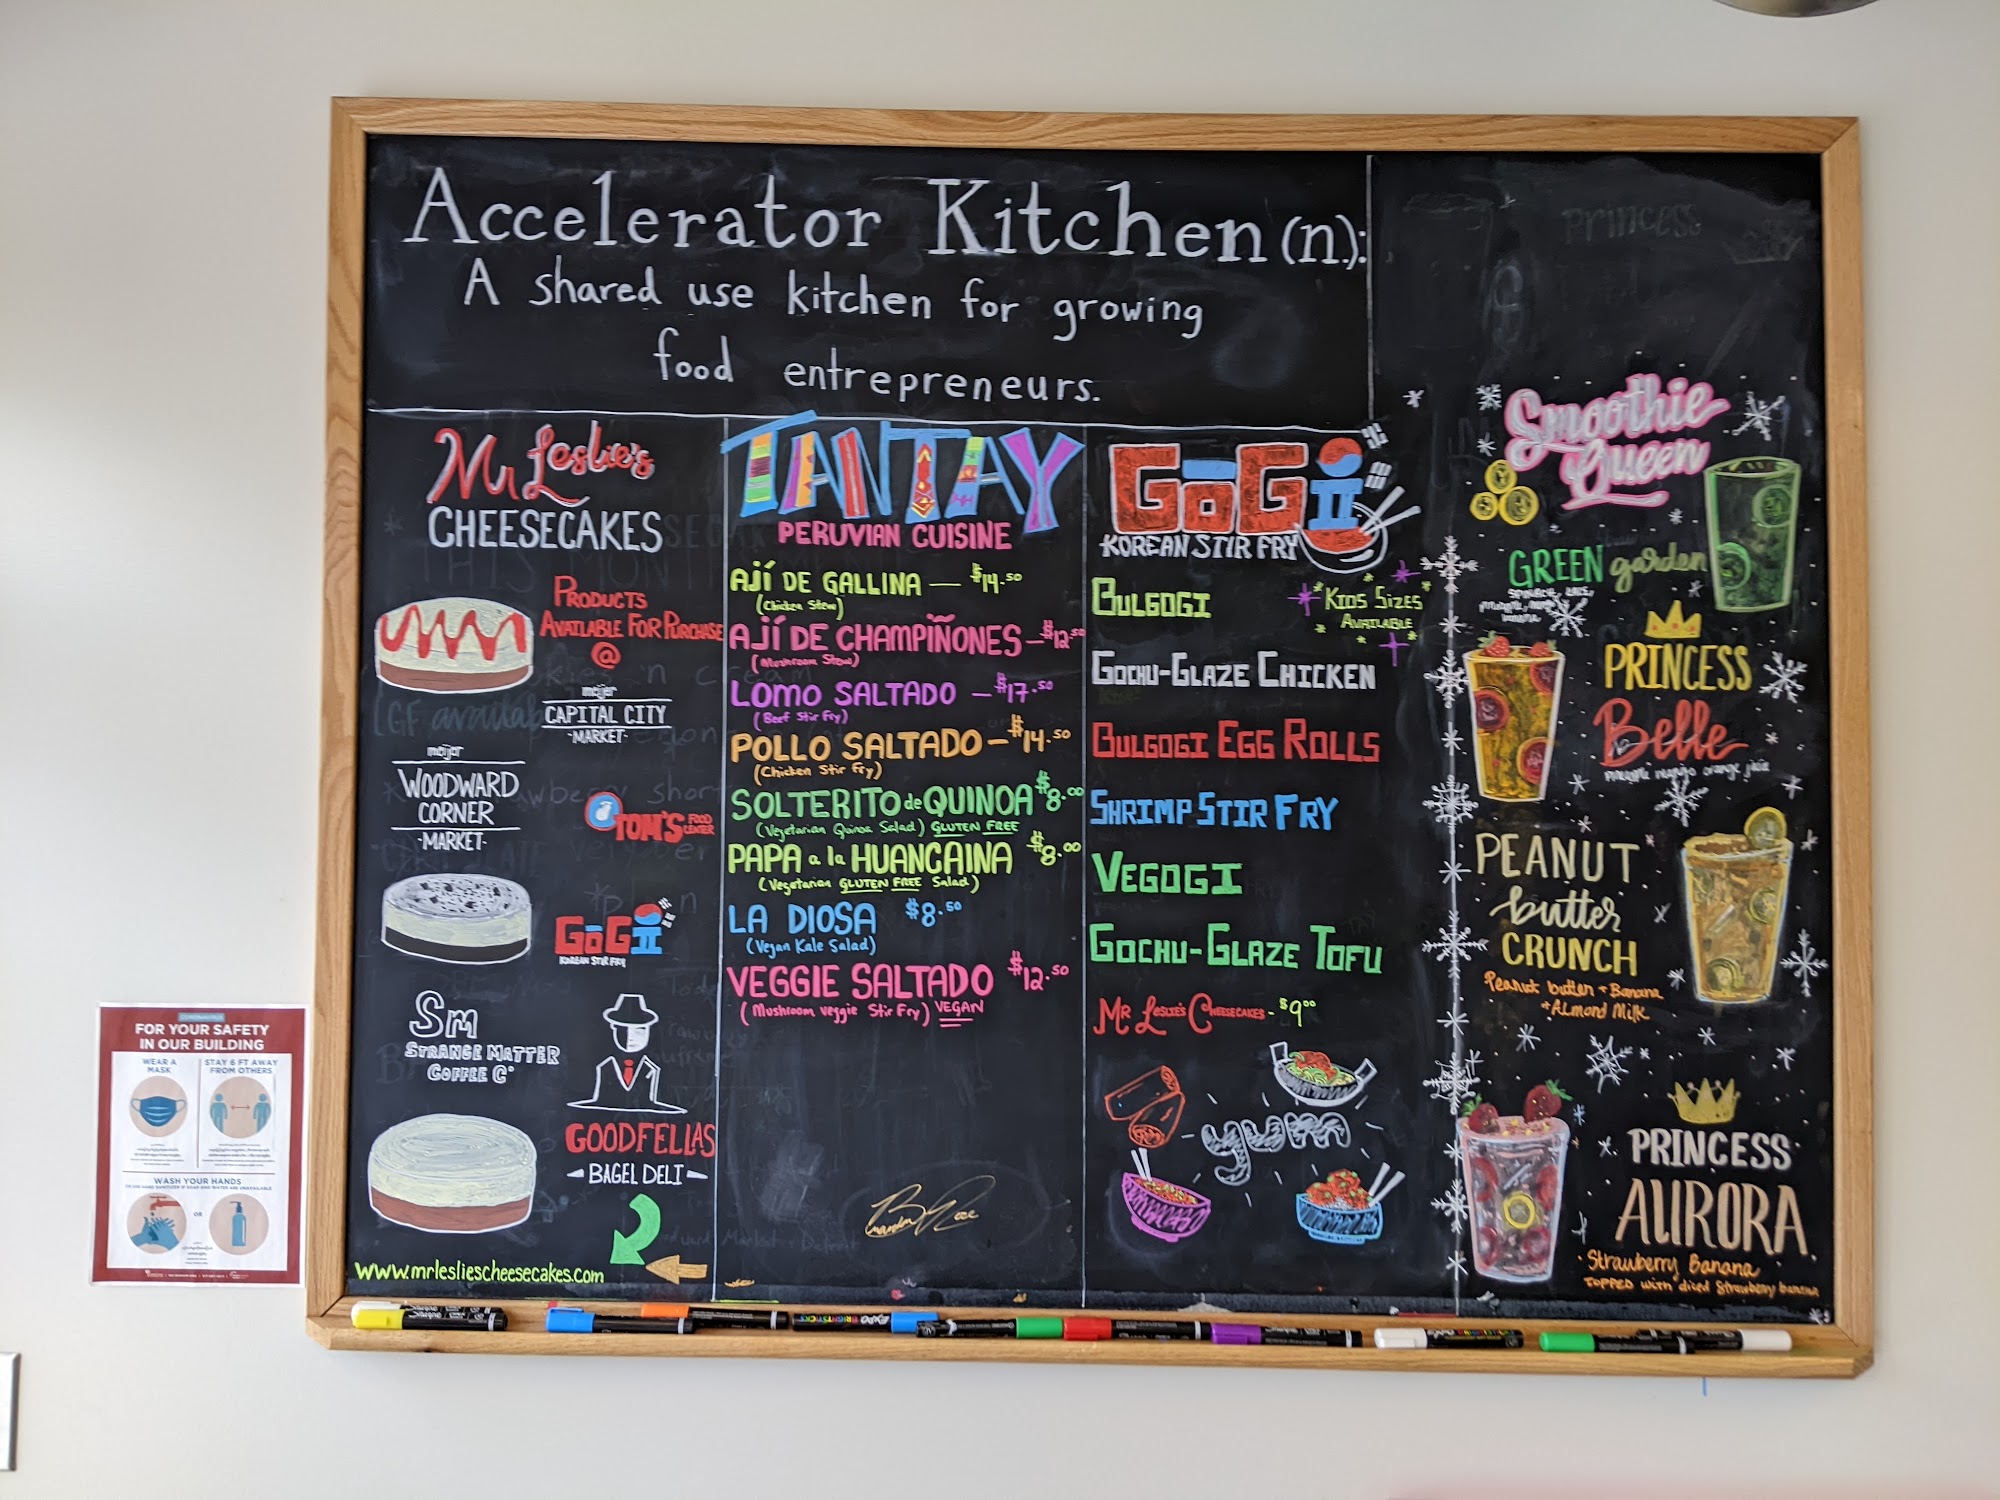 Accelerator Kitchen (n.):
A shared use kitchen for growing
food entrepreneurs.
Mr Leslie's
CHEESECAKES
PRODUCTS
AVAILABLE FOR PURCHASE
@
meijer
CAPITAL CITY
-MARKET-
meijer
WOODWARD
CORNER
-MARKET-
TOM'S FOOD
CENTER
GOGI
KOREAN STIR FRY
Sm
STRANGE MATTER
COFFEE Cº
GOODFELLAS
BAGEL DELI
www.mrlesliescheesecakes.com
TANTAY
PERUVIAN CUISINE
AJÍ DE GALLINA — $14.50
(Chicken Stew)
AJÍ DE CHAMPIÑONES - $12.50
(Mushroom Stew)
LOMO SALTADO - $17.50
(Beef Stir Fry)
POLLO SALTADO - $14.50
(Chicken Stir Fry)
SOLTERITO de QUINOA $8.00
(Vegetarian Quinoa Salad) GLUTEN FREE
PAPA a la HUANCAINA $8.00
(Vegetarian GLUTEN FREE Salad)
LA DIOSA $8.50
(Vegan Kale Salad)
VEGGIE SALTADO $12.50
(Mushroom veggie Stir Fry) VEGAN
GOGI
KOREAN STIR FRY
BULGOGI
*KIDS SIZES*
AVAILABLE
GOCHU-GLAZE CHICKEN
BULGOGI EGG ROLLS
SHRIMP STIR FRY
VEGOGI
GOCHU-GLAZE TOFU
MR LESLIE'S CHEESECAKES - $9.00
yum
Princess
Smoothie
Queen
GREEN garden
SPINACH, KALE,
PRINCESS
Belle
pineapple mango orange juice
PEANUT
butter
CRUNCH
Peanut butter + Banana
+ Almond Milk
PRINCESS
AURORA
Strawberry Banana
TOPPED with diced Strawberry banana
CORONAVIRUS
FOR YOUR SAFETY
IN OUR BUILDING
WEAR A
MASK
STAY 6 FT AWAY
FROM OTHERS
WASH YOUR HANDS
OR USE HAND SANITIZER IF SOAP AND WATER ARE UNAVAILABLE
OR